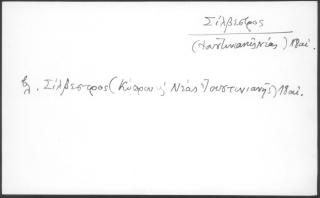 Σίλβεστρος
(Ἰουστινιανῆς Νέας) 18 αἰ.
βλ. Σίλβεστρος (Κύπρου ἤ Νέας Ἰουστινιανῆς) 18 αἰ.